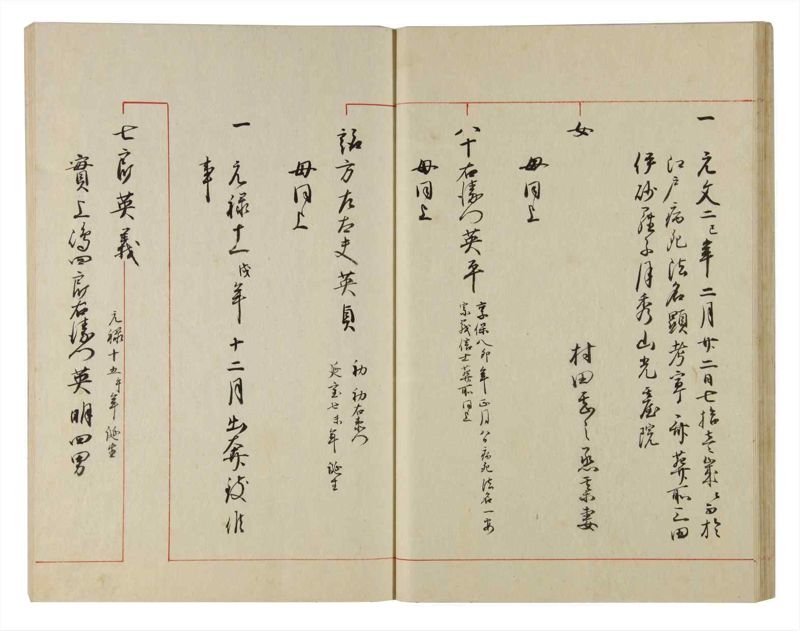 一 元文二巳年二月廿二日七拾壱歳ニ而於
江戸病死法名顕考寧 葬所三田
伊砂羅子月秀山光臺院
女
村田 妻
母同上
八十右衛門英平
享保八卯年正月 病死法名一安
宗 信士葬所同上
母同上
諸方左太史英貞
初 初右衛門
延宝七未年誕生
母同上
一 元禄十一戌年十二月出奔致候
事
七郎英義
元禄十五午年誕生
實上嶋四郎右衛門英明四男